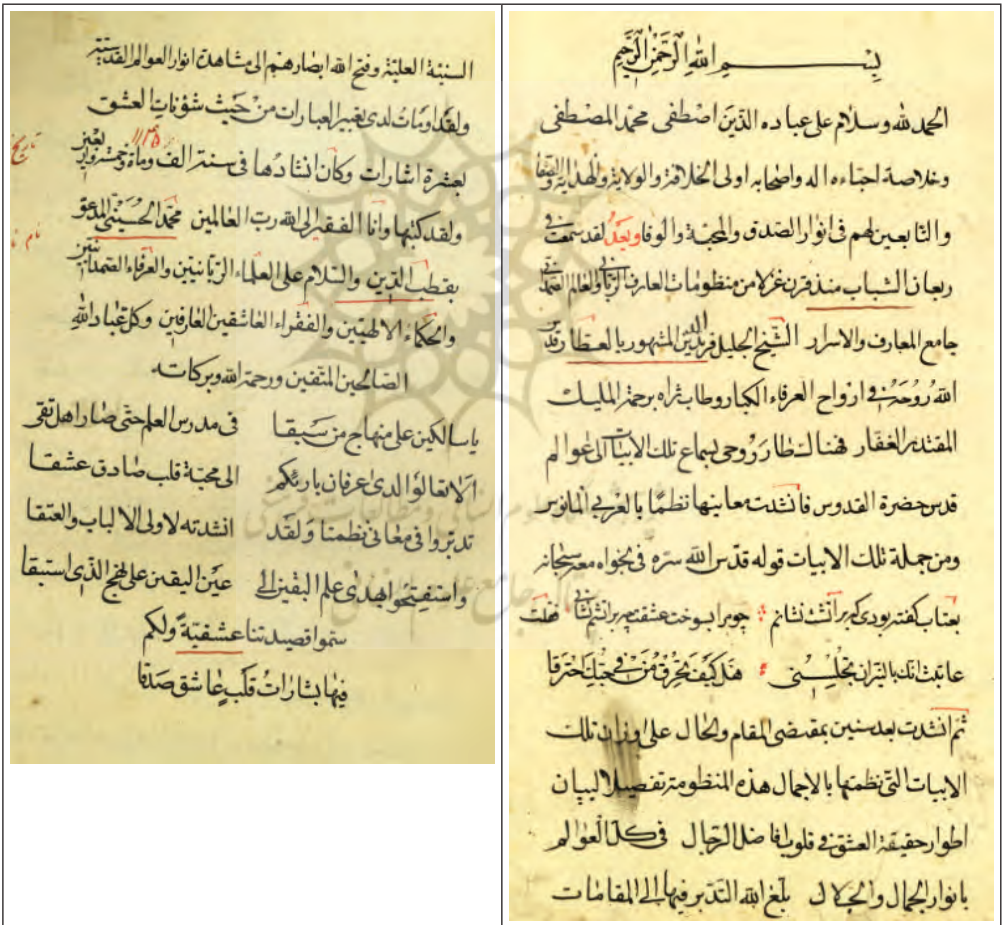 بسم الله الرحمن الرحيم
الحمد لله وسلام على عباده الذين اصطفى محمد المصطفى
وخلاصة احباءه اله واصحابه اولى الخلافة والولاية والهداية والصفا
والتابعين لهم فى انوار الصدق والمحبة والوفا وبعد لقد سمعت فى
ريعان الشباب منذ قرن غزلا من منظومات العارف الربانى والعالم الصمدانى
جامع المعارف والاسرار الشيخ الجليل فريد الدين المشهور بالعطار قدس
الله روحه فى ارواح العرفاء الكبار وطاب ثراه برحمة المليك
المقتدر الغفار فهنالك طار روحى بسماع تلك الابيات الى عوالم
قدس حضرة القدوس فانشدت معانيها نظما بالعربى المانوس
ومن جملة تلك الابيات قوله قدس الله سره فى نجواه مع سبحانه
بعتاب كفته بودى كه بر آتشت نشانم چو مرا بسوخت عشقت چه بر آتشم نشانى فقلت
عاتبت انك بالنيران تجلسنى هل كيف يحرق من فى حبك احترقا
ثم انشدت بعد سنين بمقتضى المقام والحال على اوزان تلك
الابيات التى نظمتها بالاجمال هذه المنظومة تفصيلا لبيان
اطوار حقيقة العشق فى قلوب افاضل الرجال فى كل العوالم
بانوار الجمال والجلال بلغ الله التدبر فيها الى المقامات
السنية العلية وفتح الله ابصارهم الى مشاهدة انوار العوالم القدسية
ولقد اومات لدى تعبير العبارات من حيث شؤنات العشق
بعشرة اشارات وكان انشادها فى سنة الف ومأة وخمسة واربعين
١١٤٥
تاريخ
ولقد كتبها وانا الفقير الى الله رب العالمين محمد الحسينى المدعو
نام
بقطب الدين والسلام على العلماء الربانيين والعرفاء الصمدانيين
والحكماء الالهيين والفقراء العاشقين العارفين وكل عباد الله
الصالحين المتقين ورحمة الله وبركاته
يا سالكين على منهاج من سبقا فى مدرس العلم حتى صار اهل تقى
الا تعالوا لدى عرفان بارئكم الى محبة قلب صادق عشقا
تدبروا فى معانى نظمنا ولقد انشدته لاولى الالباب والعتقا
واستفتحوا بهدى علم اليقين الى عين اليقين على نهج الذى استبقا
سموا قصيدتنا عشقية ولكم
فيها بشارات قلب عاشق صدقا